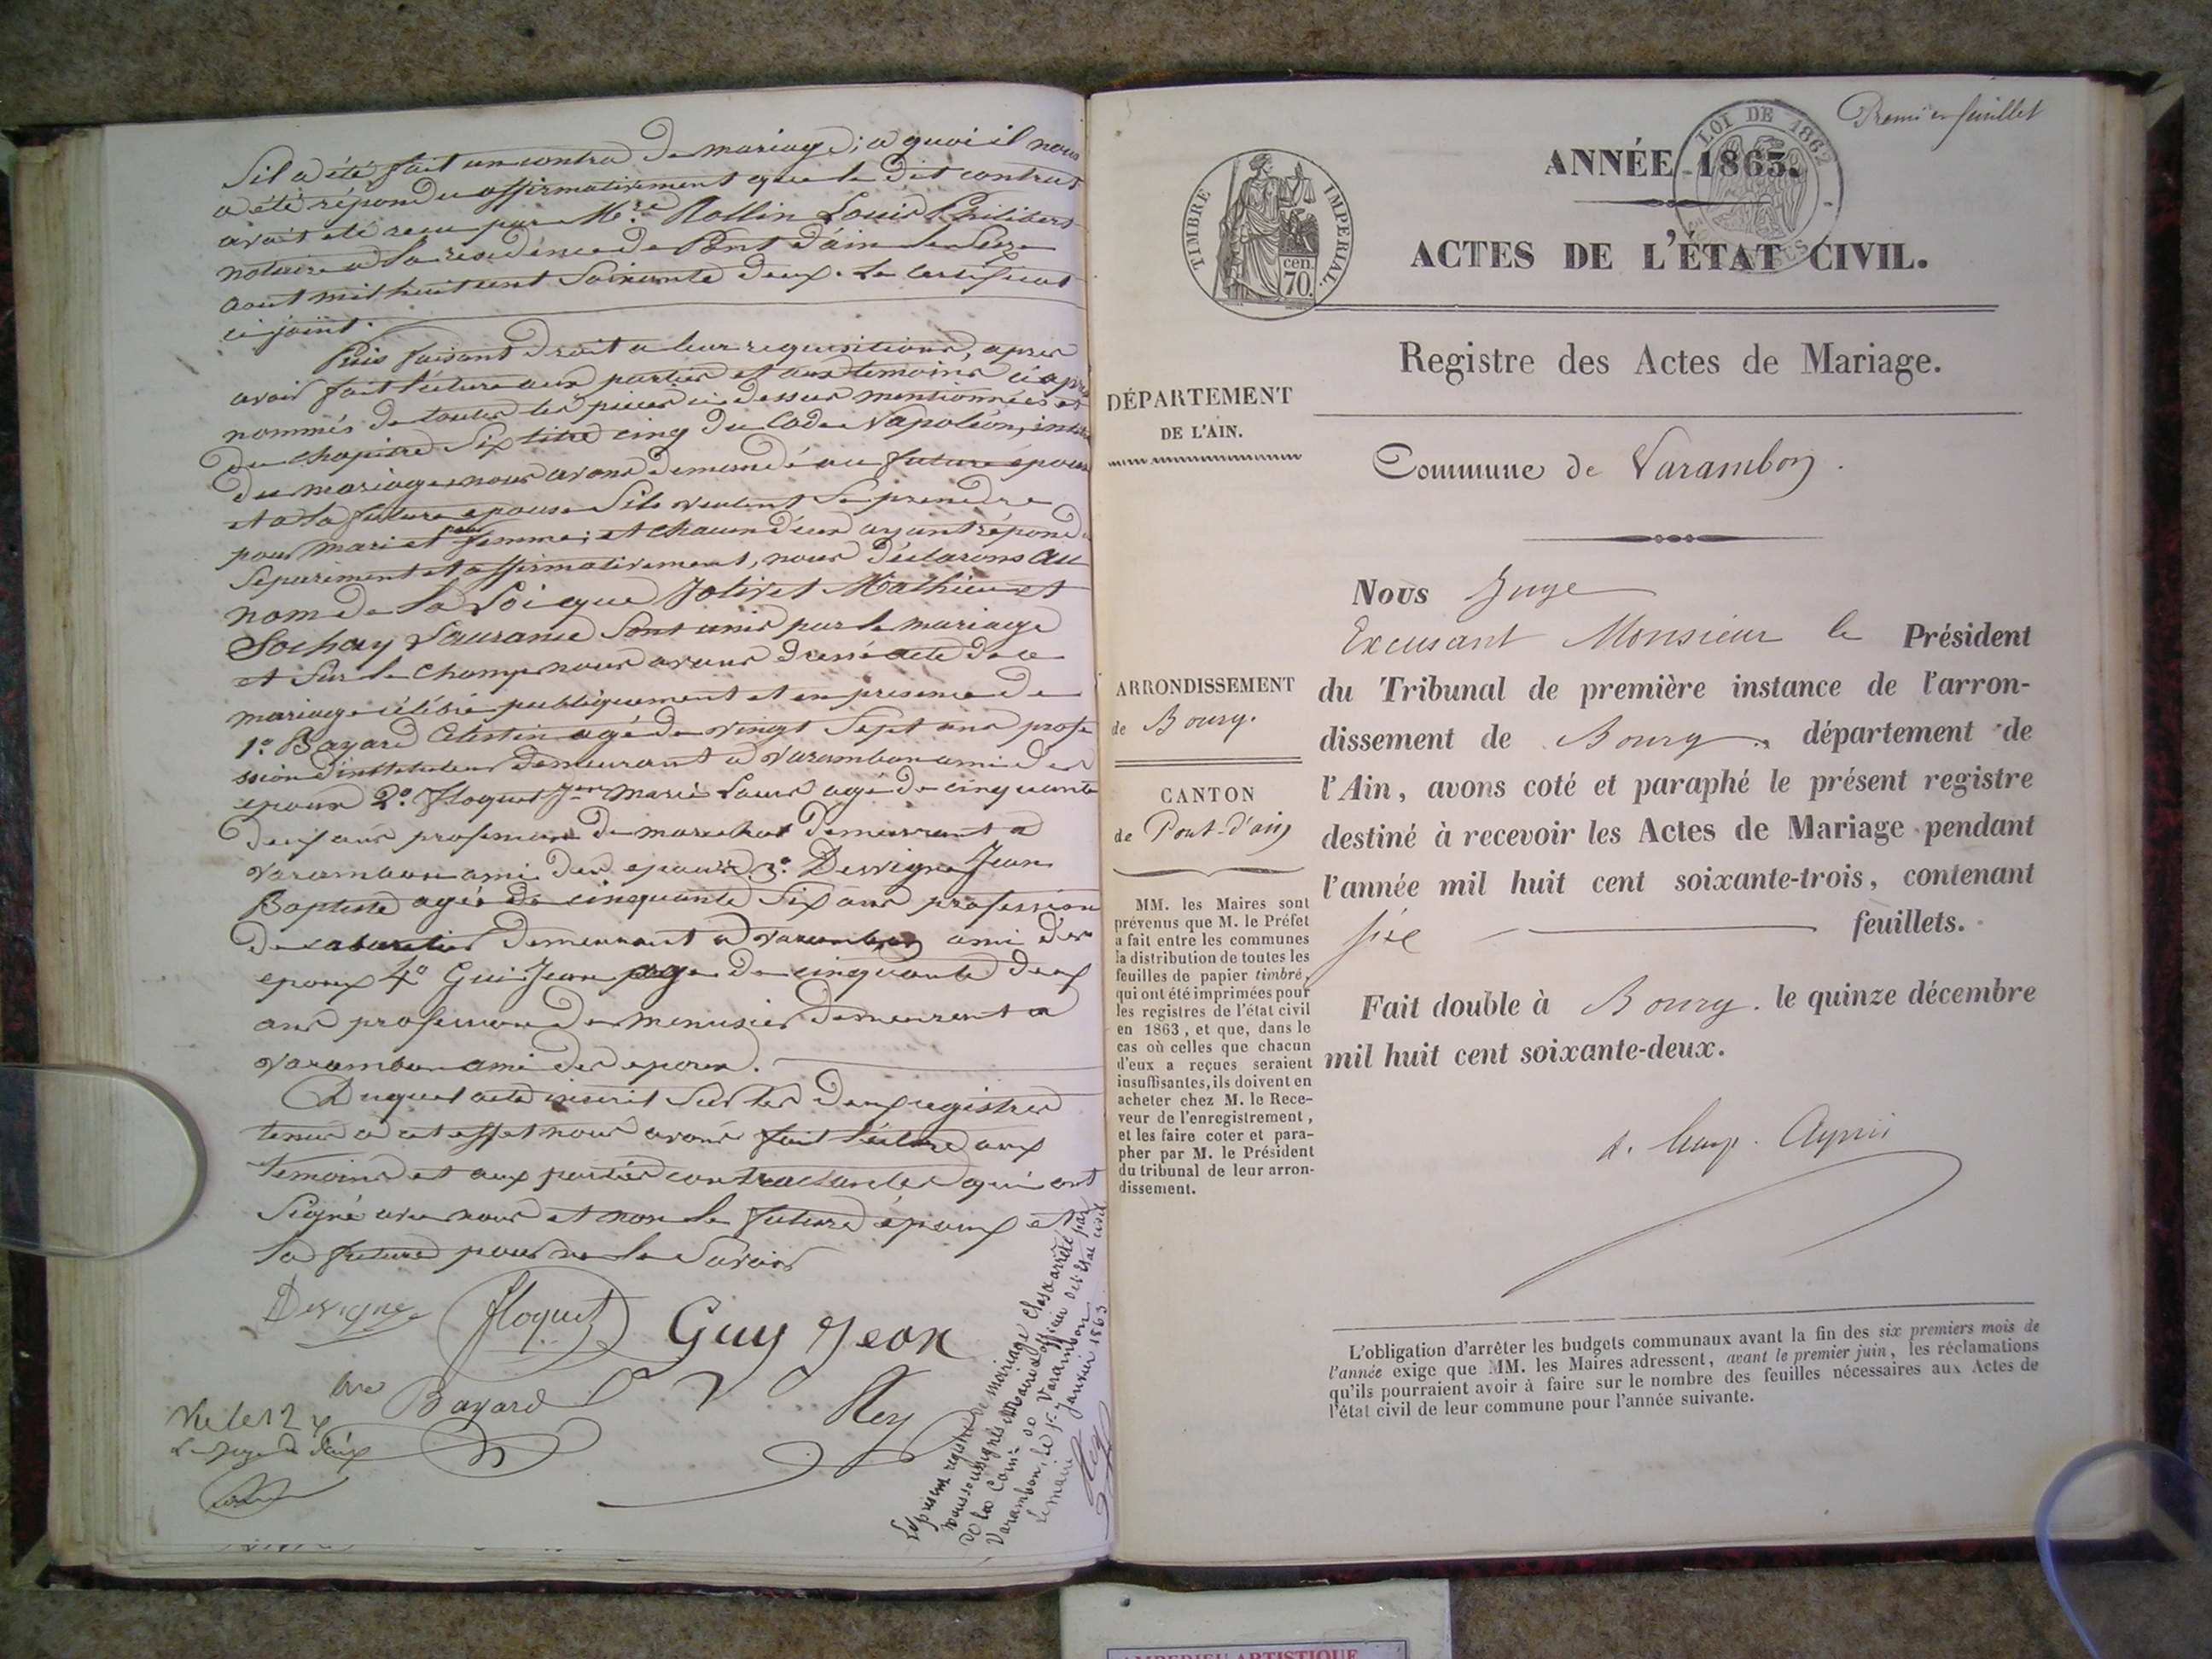 Sil a été fait un contra de mariage; a quoi il nous
a été répondu affirmativement que le dit contrat
avait été recu par Mtre Rollin Louis Philibert
notaire a la residence de Pont d'ain le seize
aout mil huit cent soixante deux. Le certificat
ci joint.
Puis faisant droit a leur requisitions, apres
avoir fait lecture aux parties et aux temoins ci apres
nommés de toutes les pieces ci dessus mentionnées et
du chapitre Six titre cinq du Code Napoléon, intitulé
du mariage nous avons demandé au future epoux
et a la future epouse Sils veulent Se prendre
pour mari et pour femme; et chacun d'eux ayant répondu
Séparément et affirmativement, nous déclarons au
nom de la Loi que Jolivet Mathieu et
Sochay Laurance Sont unis par le mariage
et Sur le champ nous avons dressé acte de ce
mariage célébré publiquement et en presence de
1o. Bayard Celestin agé de vingt Sept ans profe
ssion d'instituteur demeurant a Varambon ami des
epoux 2o. Floquet Jean Marie Louis agé de cinquante
deux ans profession de marechal demeurant a
Varambon ami des epoux 3o. Desvigne Jean
Baptiste agé de cinquante Six ans profession
de cabaretier demeurant a Varambon ami des
epoux 4o Gui Jean age de cinquante deux
ans profession de menusier demeurant a
Varambon ami des epoux.
Duquel acte inscrit Sur les deux registres
tenus a cet effet nous avons fait lecture aux
temoins et aux parties contractantes qui ont
Signé avec nous et non le future époux et
la future pour ne le Savoir
Desvigne Floquet Guy Jean
Bayard Rey
Vu le 12
Le juge de Paix
Le présent registre de mariage clos et arrêté par
nous soussignés maire officier de l'état civil
de la Com.ne de Varambon
Varambon, le 1er Janvier 1863
Le maire
Rey
Premier feuillet
LOI DE 1862
ANNÉE 1863.
TIMBRE IMPÉRIAL.
cen.
70.
ACTES DE L'ÉTAT CIVIL.
Registre des Actes de Mariage.
DÉPARTEMENT
DE L'AIN.
Commune de Varambon.
ARRONDISSEMENT
de Bourg.
CANTON
de Pont-d'ain
MM. les Maires sont
prévenus que M. le Préfet
a fait entre les communes
la distribution de toutes les
feuilles de papier timbré,
qui ont été imprimées pour
les registres de l'état civil
en 1863, et que, dans le
cas où celles que chacun
d'eux a reçues seraient
insuffisantes, ils doivent en
acheter chez M. le Rece-
veur de l'enregistrement,
et les faire coter et para-
pher par M. le Président
du tribunal de leur arron-
dissement.
Nous Juge
Excusant Monsieur le Président
du Tribunal de première instance de l'arron-
dissement de Bourg, département de
l'Ain, avons coté et paraphé le présent registre
destiné à recevoir les Actes de Mariage pendant
l'année mil huit cent soixante-trois, contenant
six feuillets.
Fait double à Bourg. le quinze décembre
mil huit cent soixante-deux.
L'obligation d'arrêter les budgets communaux avant la fin des six premiers mois de
l'année exige que MM. les Maires adressent, avant le premier juin, les réclamations
qu'ils pourraient avoir à faire sur le nombre des feuilles nécessaires aux Actes de
l'état civil de leur commune pour l'année suivante.
AMBERIEU ARTISTIQUE